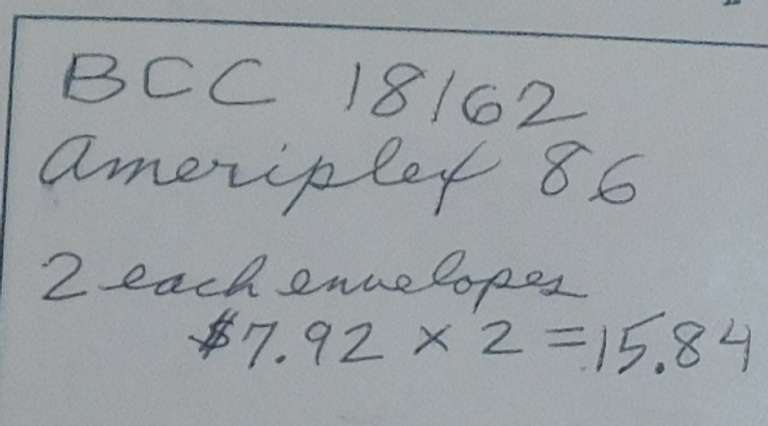 BCC 18162
Ameriplex 86
2 each envelopes
$7.92 × 2 = 15.84